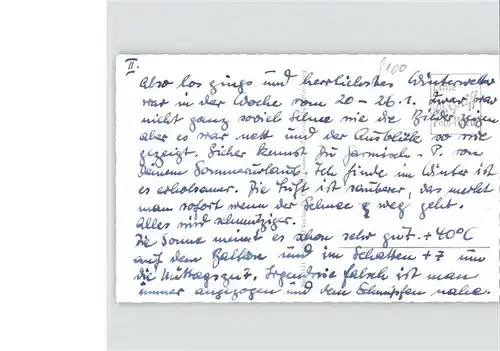 II.
8100
Also los gings und herrlichstes Winterwetter
war in der Woche vom 20 - 26.1. Zwar war
nicht ganz soviel Schnee wie die Bilder zeigen
aber es war nett und der Ausblick so wie
gezeigt. Sicher kennst Du Garmisch - P. von
Deinem Sommerurlaub. Ich finde im Winter ist
es erholsamer. Die Luft ist sauberer, das merkt
man sofort wenn der Schnee weg geht.
Alles wird schmutziger.
Die Sonne meint es schon sehr gut. +40°C
auf dem Balkon und im Schatten +7 um
die Mittagszeit. Irgendwie falsch ist man
immer angezogen und dem Schnupfen nahe.